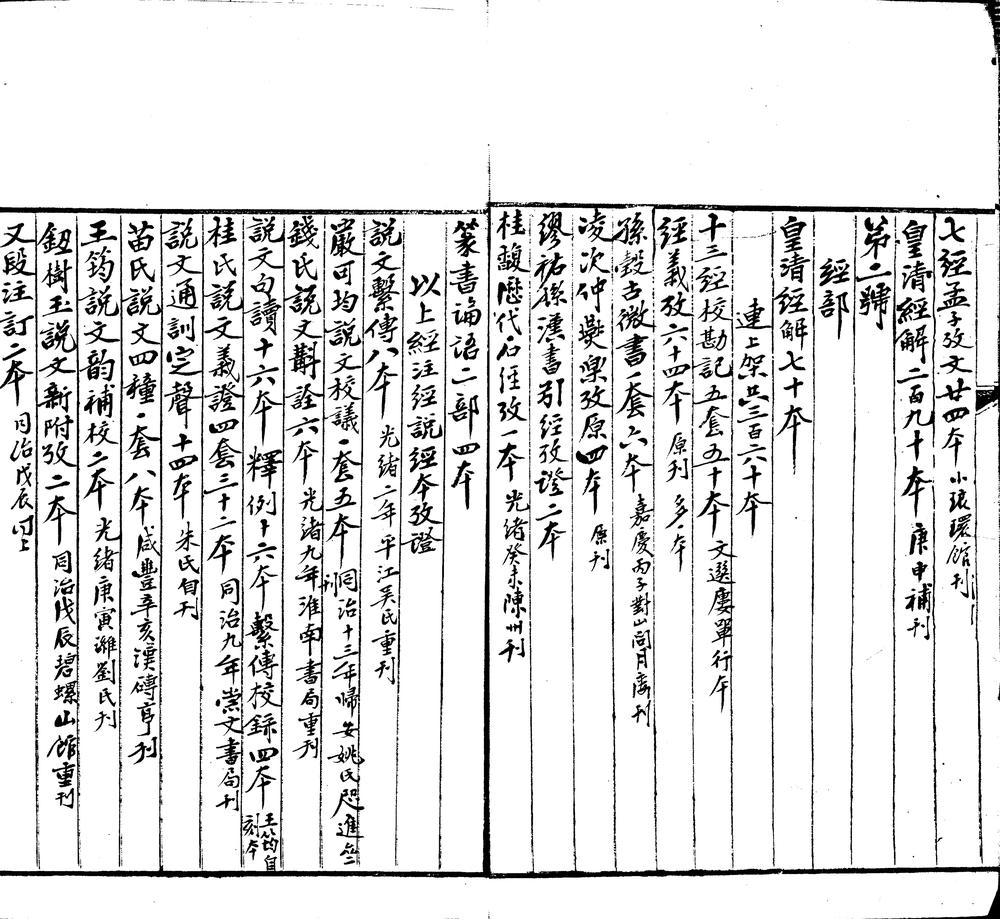 七經孟子攷文廿四本 小琅環館刊
皇清經解二百九十本 庚申補刊
第二號
經部
皇清經解七十本
連上架共三百六十本
十三經校勘記五套五十本 文選樓單行本
經義攷六十四本 原刊 多一本
孫瑴古微書一套六本 嘉慶丙子對山問月樓刊
凌次仲燕樂攷原四本 原刊
繆祐孫漢書引經攷證二本
桂馥歷代石經攷一本 光緒癸未陳州刊
篆書論語二部四本
以上經注經說經本攷證
說文繫傳八本 光緒二年平江吳氏重刊
嚴可均說文校議一套五本 同治十三年歸安姚氏咫進齋刊
錢氏說文斠詮六本 光緒九年淮南書局重刊
說文句讀十六本 釋例十六本 繫傳校錄四本 王筠自刻本
桂氏說文義證四套三十二本 同治九年崇文書局刊
說文通訓定聲十四本 朱氏自刊
苗氏說文四種一套八本 咸豐辛亥漢磚亭刊
王筠說文韵補校二本 光緒庚寅濰劉氏刊
鈕樹玉說文新附攷二本 同治戊辰碧螺山館重刊
又段注訂二本 同治戊辰同上